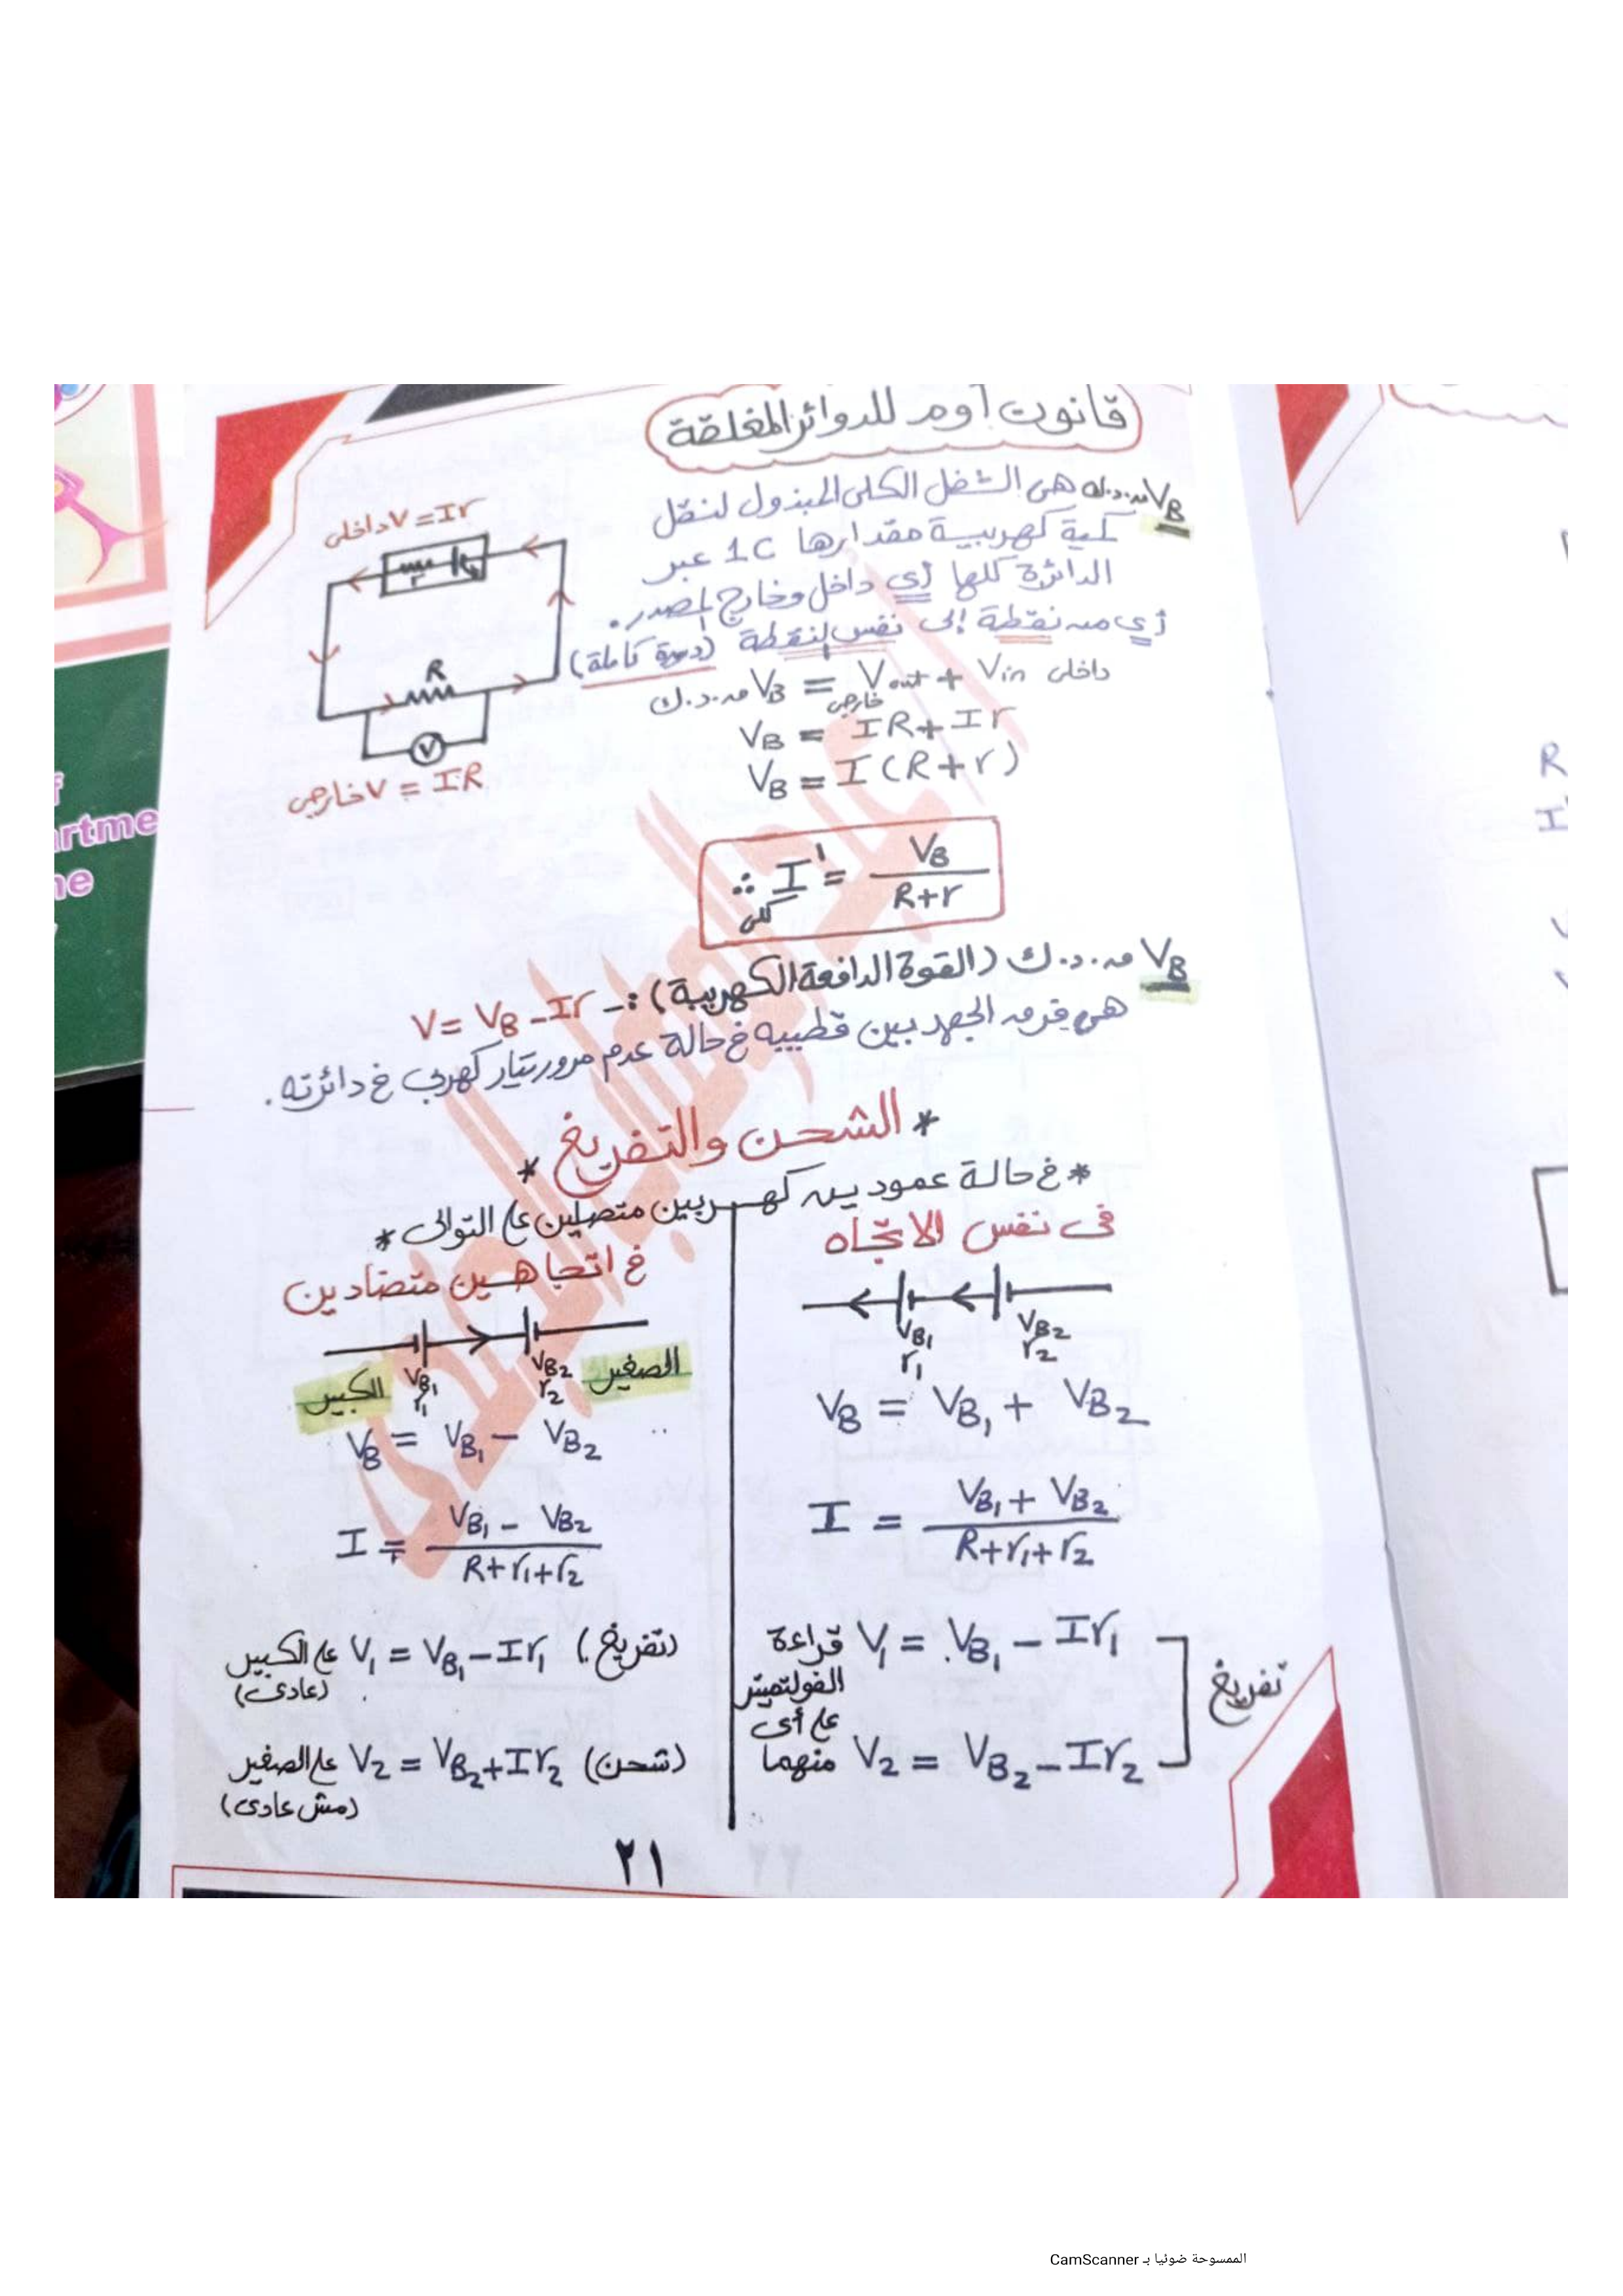 قانون أوم للدوائر المغلقة
VB ق.د.ك هى الشغل الكلى المبذول لنقل
كمية كهربية مقدارها 1C عبر
الدائرة كلها أي داخل وخارج المصدر.
أي من نقطة إلى نفس النقطة (دورة كاملة)
داخلى V = Ir
r
R
V
خارجى V = IR
ق.د.ك VB = Vout + Vin داخلى
خارجى
VB = IR + Ir
VB = I (R+r)
∴ I = VB / R+r
كلى
VB ق.د.ك (القوة الدافعة الكهربية) :- V = VB - Ir
هى فرق الجهد بين قطبيه في حالة عدم مرور تيار كهربي في دائرته.
* الشحن والتفريغ *
* في حالة عمودين كهربيين متصلين على التوالى *
فى نفس الاتجاه
VB1 VB2
r1 r2
VB = VB1 + VB2
I = VB1 + VB2 / R+r1+r2
قراءة V1 = VB1 - Ir1
الفولتميتر
على أى
منهما V2 = VB2 - Ir2
تفريغ
في اتجاهين متضادين
الكبير VB1 VB2 الصغير
r1 r2
VB = VB1 - VB2
I = VB1 - VB2 / R+r1+r2
على الكبير V1 = VB1 - Ir1 (تفريغ)
(عادى)
على الصغير V2 = VB2 + Ir2 (شحن)
(مش عادى)
٢١
rtme
ne
R
I
الممسوحة ضوئيا بـ CamScanner